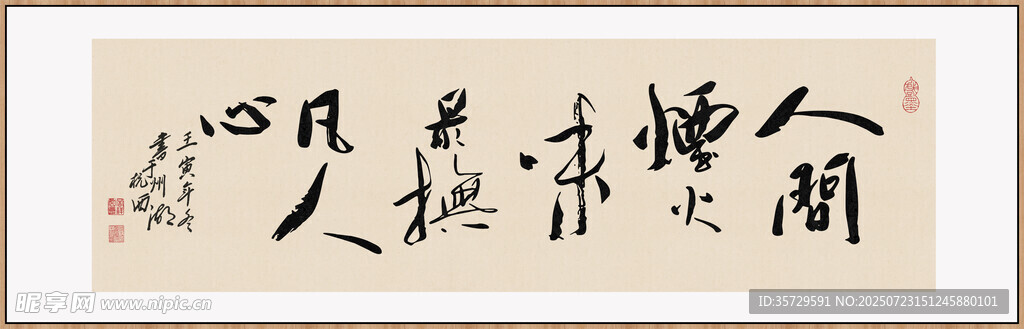 人間
煙火
味
最撫
凡人
心
壬寅年冬
書于杭州西湖
昵享网 www.nipic.cn
ID:35729591 NO:20250723151245880101